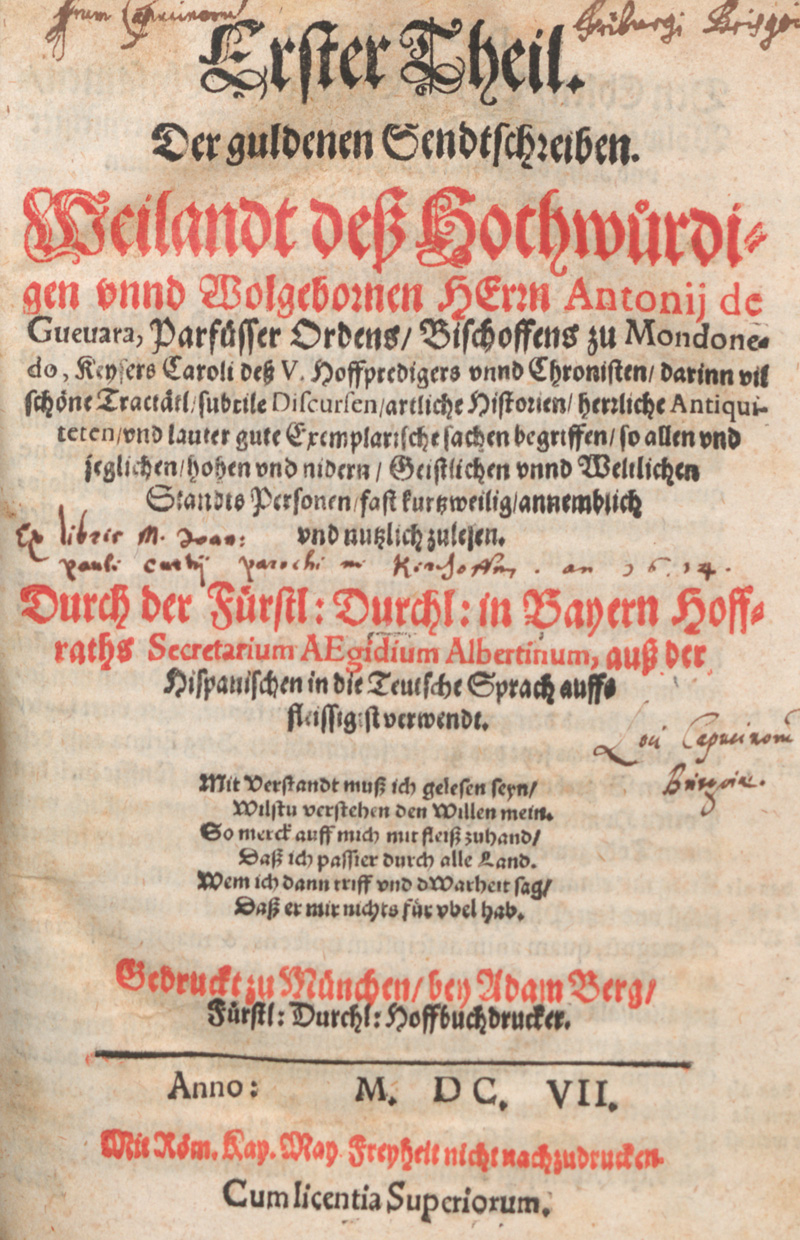 Erster Theil.
Der guldenen Sendtschreiben.
Weilandt deß Hochwürdi-
gen vnnd Wolgebornen HErrn Antonij de
Gueuara, Parfüsser Ordens/ Bischoffens zu Mondone-
do, Keysers Caroli deß V. Hoffpredigers vnnd Chronisten/ darinn vil
schöne Tractätl/ subtile Discursen/ artliche Historien/ herrliche Antiqui-
teten/ vnd lauter gute Exemplarische sachen begriffen/ so allen vnd
jeglichen/ hohen vnd nidern/ Geistlichen vnnd Weltlichen
Standts Personen/ fast kurtzweilig/ annemblich
vnd nutzlich zulesen.
Ex libris M. Joan:
pauli parochi in . an 1614.
Durch der Fürstl: Durchl: in Bayern Hoff-
raths Secretarium AEgidium Albertinum, auß der
Hispanischen in die Teutsche Sprach auffs
fleissigist verwendt.
Loci Capucinorum
Mit Verstandt muß ich gelesen seyn/
Wilstu verstehen den Willen mein.
So merck auff mich mit fleiß zuhand/
Daß ich passier durch alle Land.
Wem ich dann triff vnd dWarheit sag/
Daß er mir nichts für vbel hab.
Gedruckt zu München/ bey Adam Berg/
Fürstl: Durchl: Hoffbuchdrucker.
Anno: M. DC. VII.
Mit Röm. Kay. May. Freyheit nicht nachzudrucken.
Cum licentia Superiorum.